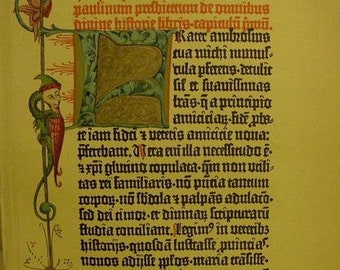 paulinum presbiterum de omnibus
divine historie libris. capitulū pmū.
Frater ambrosius
tua michi munus-
cula pferens. detulit
sił et suauissimas
lrās. q̄ a principio
amiciciaꝝ. fidē pba-
te iam fidei et veteris amicicie noua:
pferebant. Vera em̄ illa necessitudo ē.
et xp̄i glutino copulata. quā non utili-
tas rei familiaris. nō pn̄tia tantum
corpoꝝ. nō sbdola et palpās adulacō.
sed dei timor. et diuinaꝝ scripturarū
studia conciliant. Legimꝰ in veteribꝫ
historijs. quosdā lustrasse puincias.
nouos adijsse pplos. maria trāsisse.